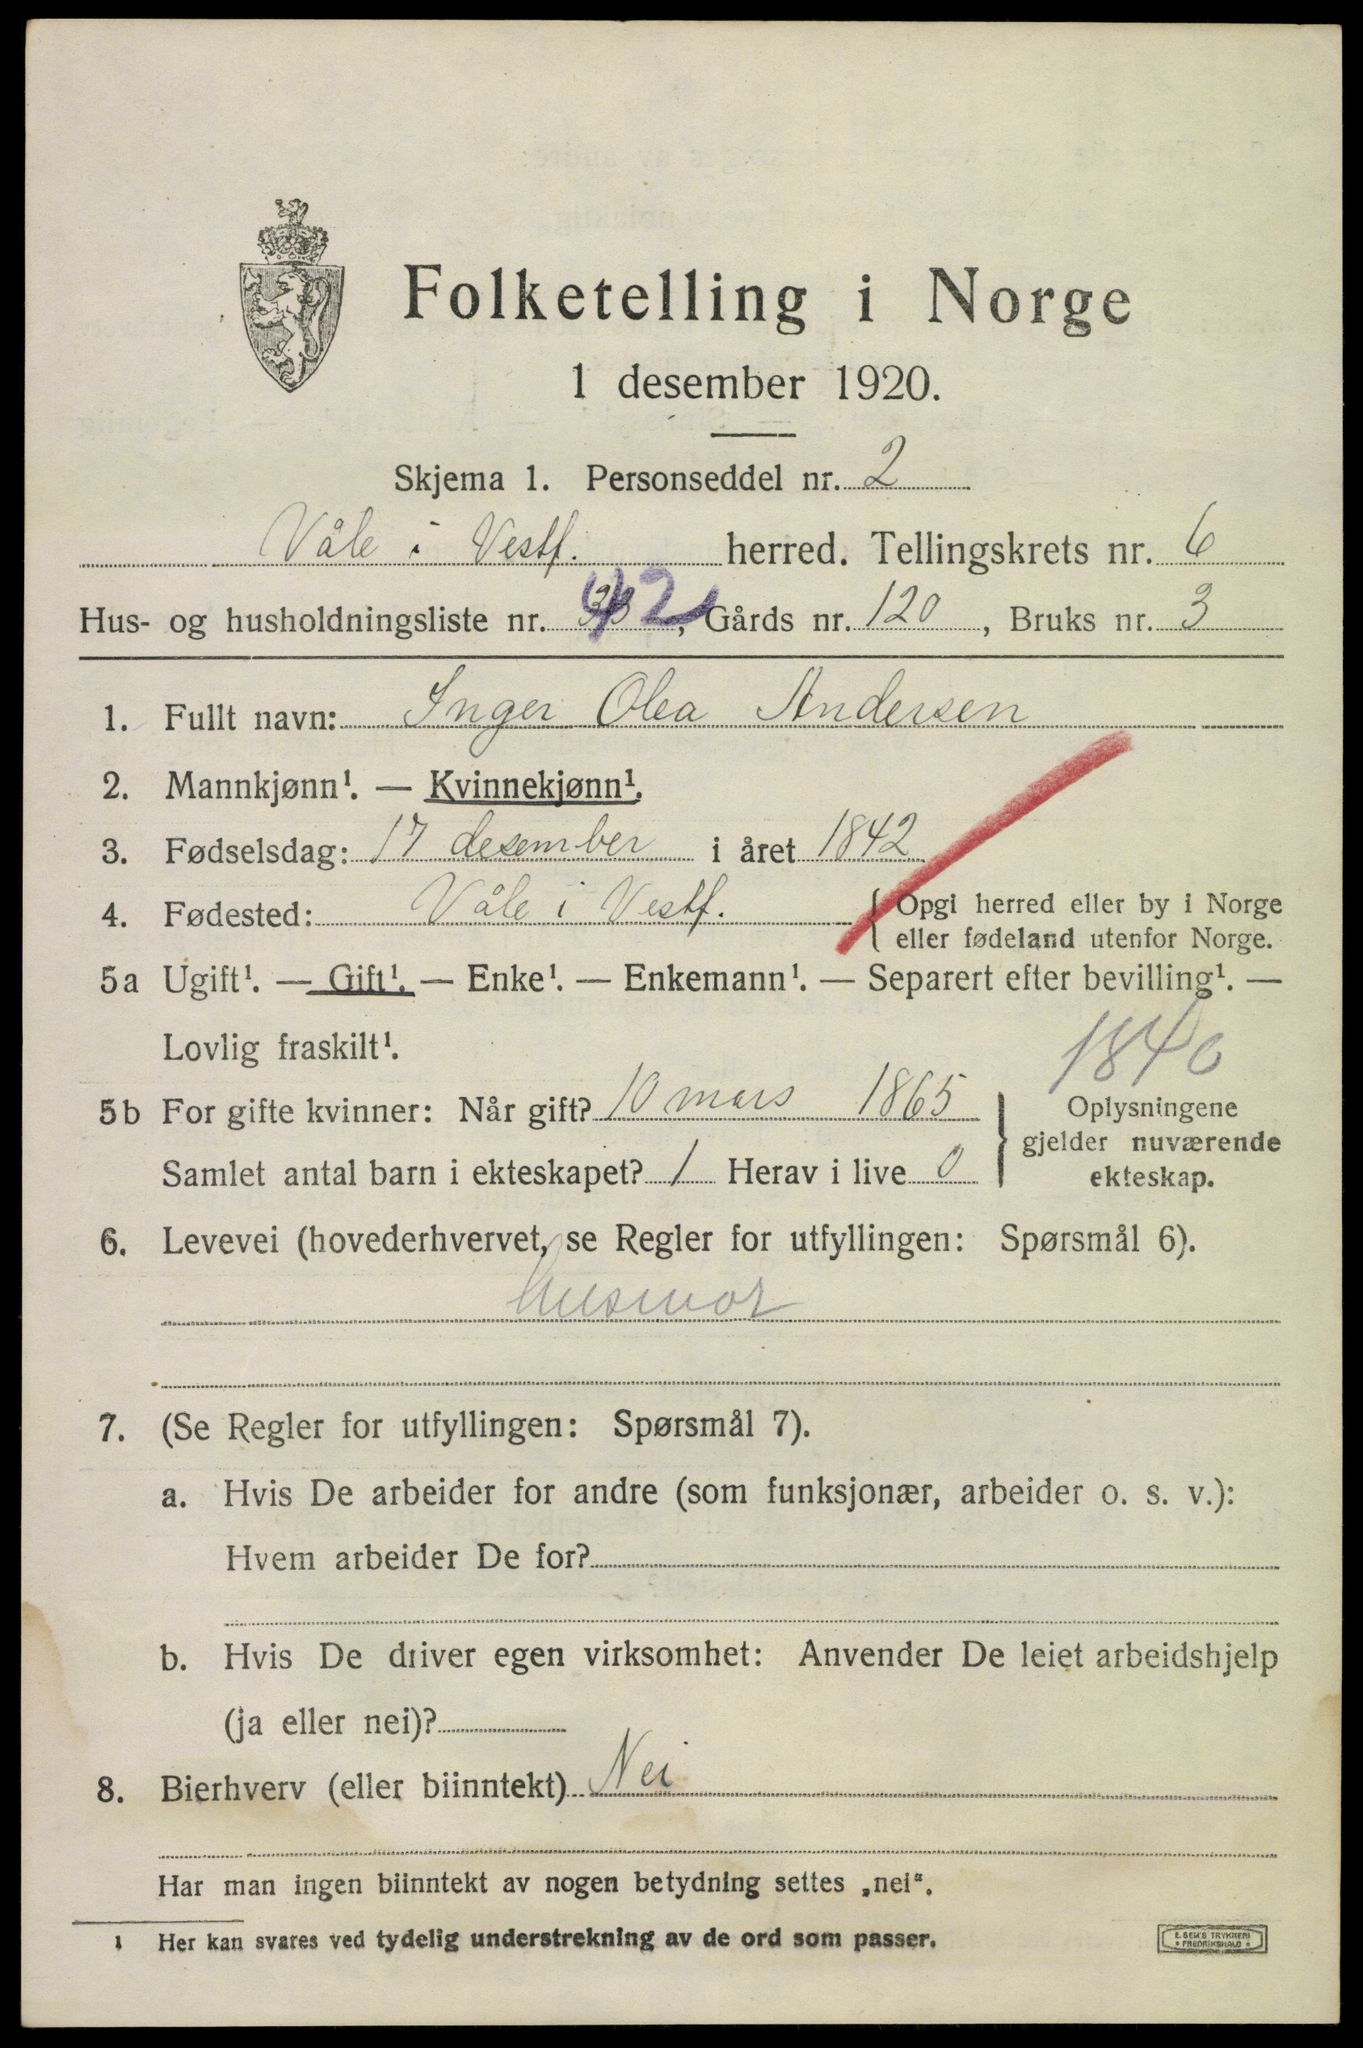 Folketelling i Norge
1 desember 1920.
Skjema 1. Personseddel nr. 2
Våle i Vestf. herred. Tellingskrets nr. 6
Hus- og husholdningsliste nr. 42, Gårds nr. 120, Bruks nr. 3
1. Fullt navn: Inger Olea Andersen
2. Mannkjønn¹. — Kvinnekjønn¹.
3. Fødselsdag: 17 desember i året 1842
4. Fødested: Våle i Vestf. { Opgi herred eller by i Norge
eller fødeland utenfor Norge.
5a Ugift¹. — Gift¹. — Enke¹. — Enkemann¹. — Separert efter bevilling¹. —
Lovlig fraskilt¹.
1840
5b For gifte kvinner: Når gift? 10 mars 1865
Samlet antal barn i ekteskapet? 1 Herav i live 0
} Oplysningene
gjelder nuværende
ekteskap.
6. Levevei (hovederhvervet, se Regler for utfyllingen: Spørsmål 6).
Husmor
7. (Se Regler for utfyllingen: Spørsmål 7).
a. Hvis De arbeider for andre (som funksjonær, arbeider o. s. v.):
Hvem arbeider De for?
b. Hvis De driver egen virksomhet: Anvender De leiet arbeidshjelp
(ja eller nei)?
8. Bierhverv (eller biinntekt) Nei
Har man ingen biinntekt av nogen betydning settes „nei“.
1 Her kan svares ved tydelig understrekning av de ord som passer.
E. SEM'S TRYKKERI
• FREDRIKSHALD •